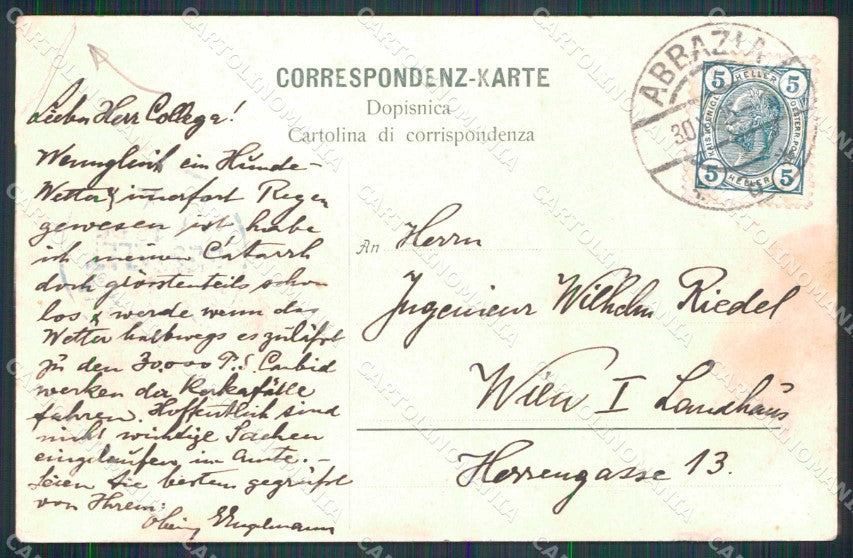 CORRESPONDENZ-KARTE
Dopisnica
Cartolina di corrispondenza
ABBAZIA
30
5 HELLER 5
5 HELLER 5
Lieber Herr College!
Wenngleich ein Hunde-
Wetter & immerfort Regen
gewesen ist habe
ich meinen Catarrh
doch grösstenteils schon
los & werde wenn das
Wetter halbwegs es zuläßt
zu den 30.000 P.S. Carbid
werken der Kerkafälle
fahren. Hoffentlich sind
nicht wichtige Sachen
eingelaufen im Amte. –
Seien Sie bestens gegrüßt
von Ihrem:
Engelmann
An Herrn
Ingenieur Wilhelm Riedel
Wien I Landhaus
Herrengasse 13.
CARTOLINOMANIA